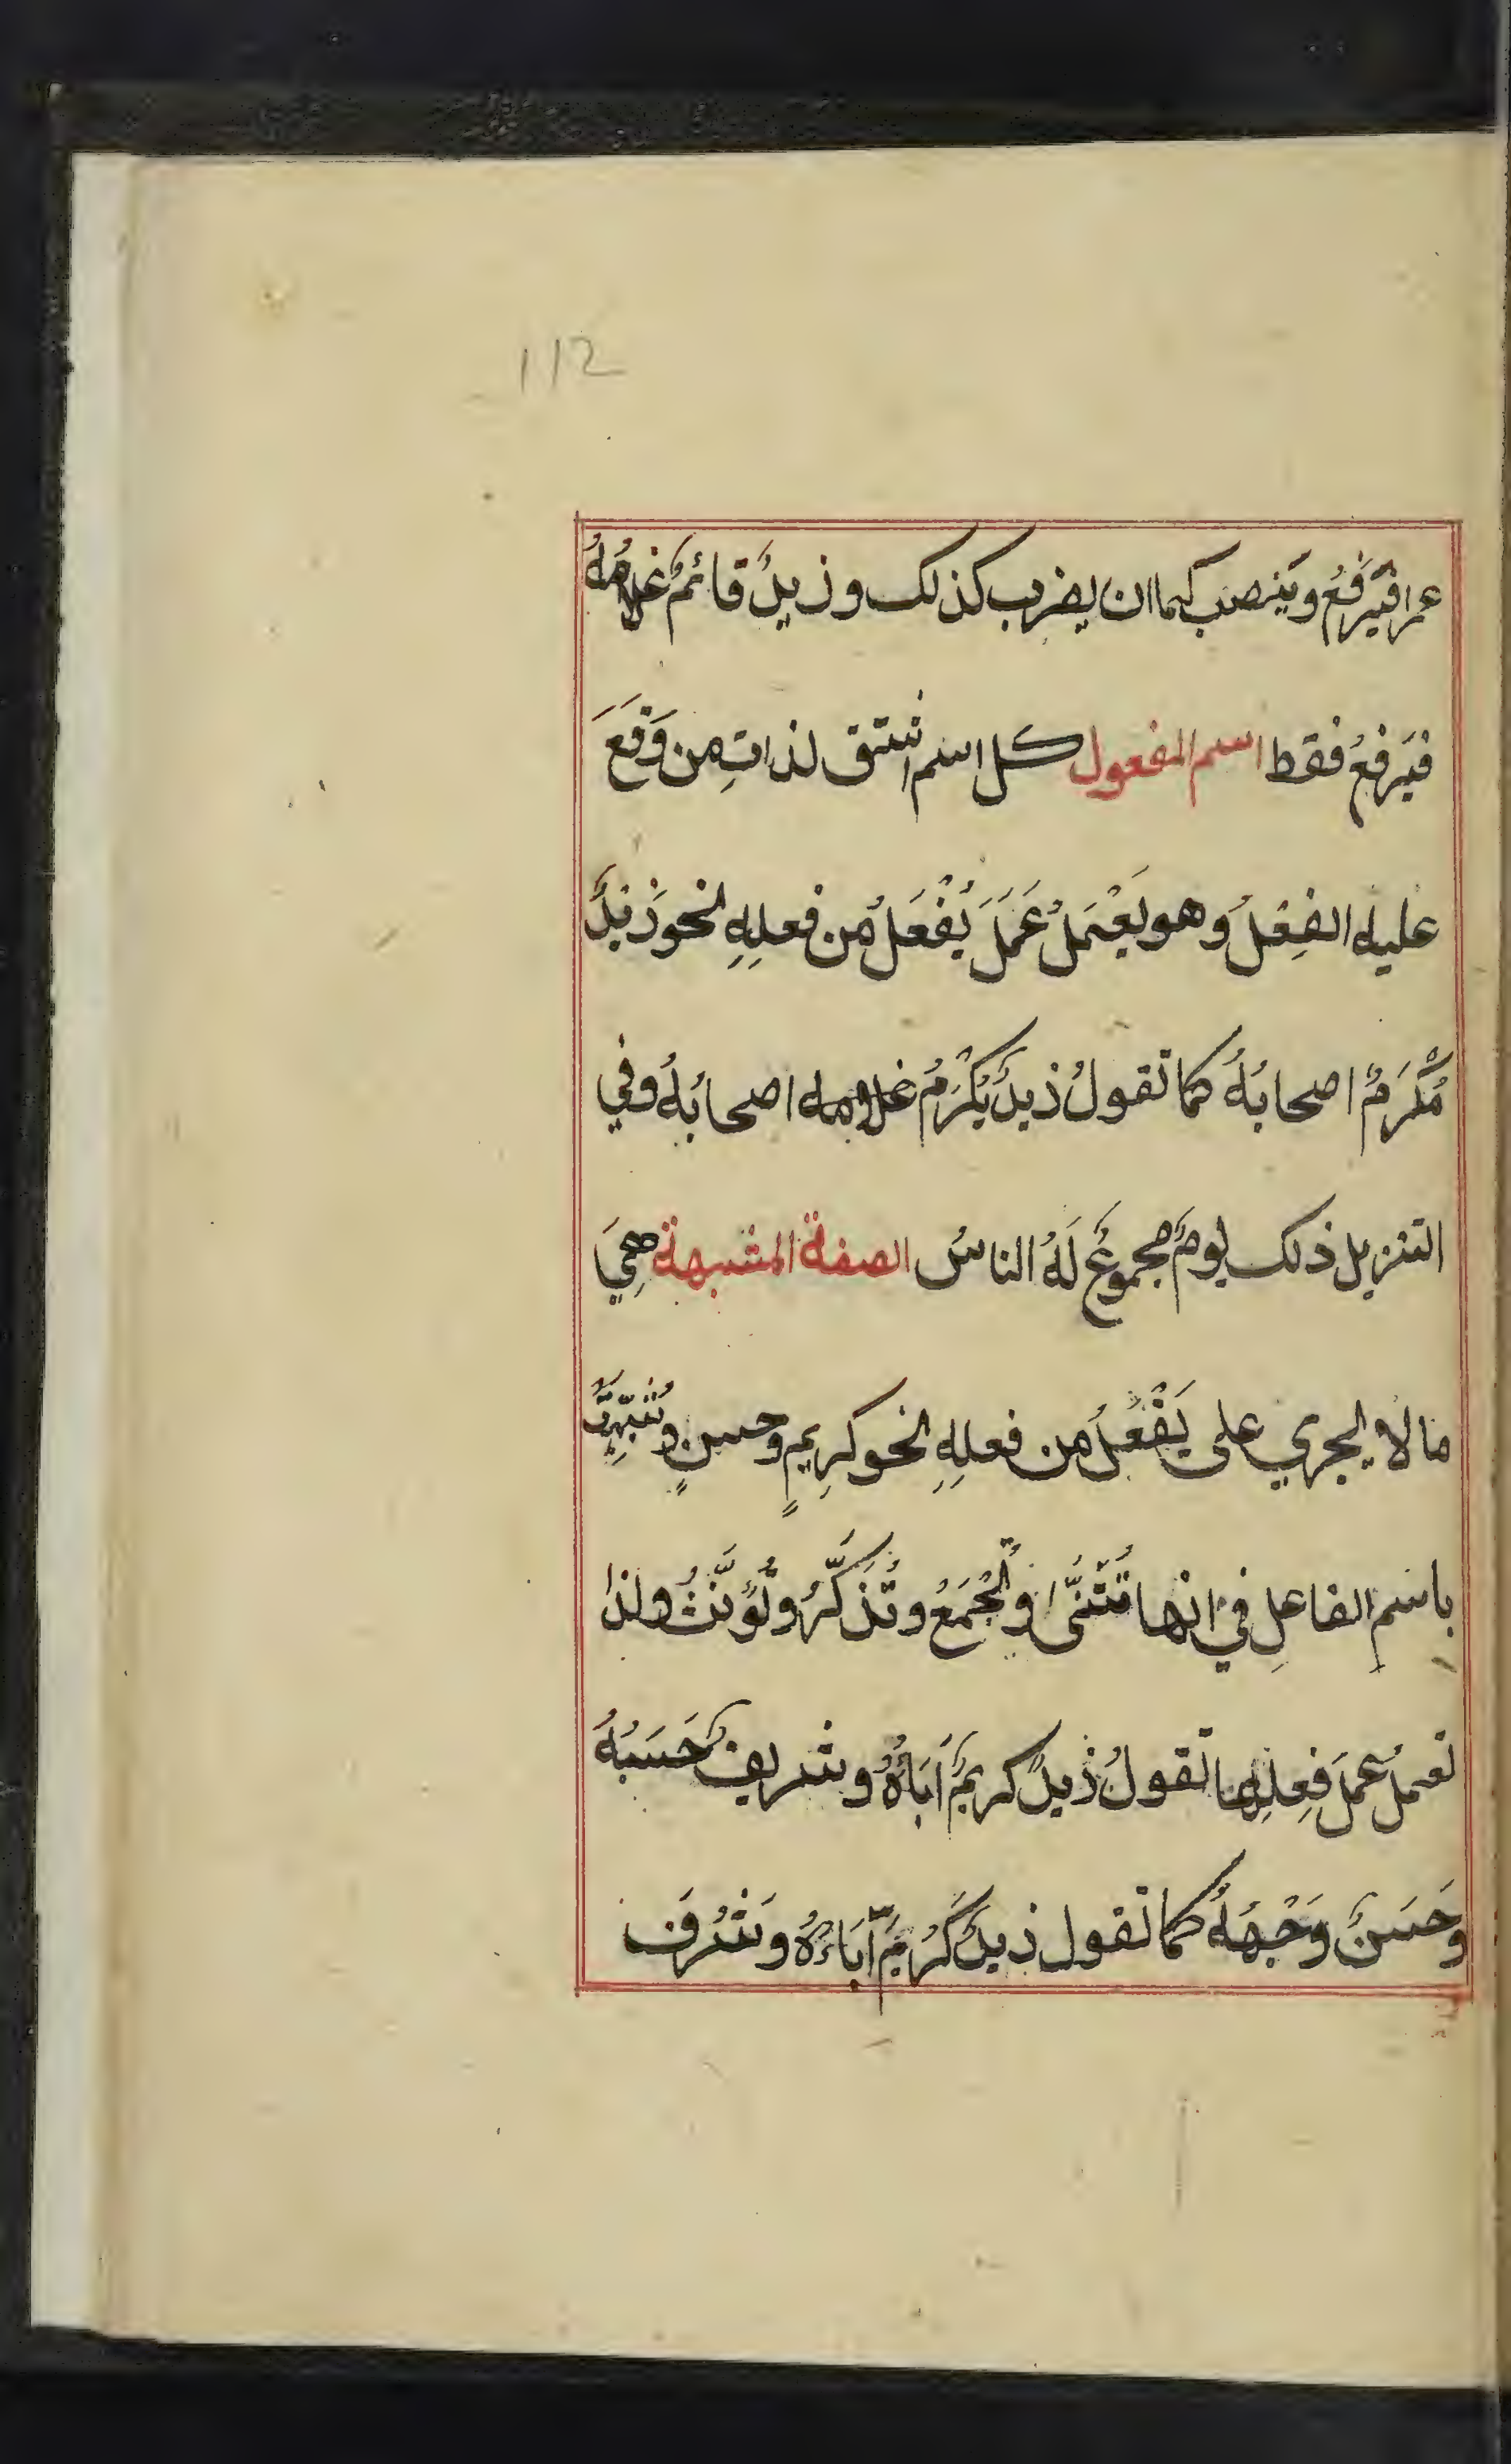 112
عمرا فيَرفَعُ ويَنصب كما ان يضرب كذلك وزيدٌ قائمٌ غلامُهُ
فيَرفعُ فقط اسم المفعول كل اسم اشتق لذاتِ من وَقَعَ
عليه الفِعْلُ وهو يَعْمَلُ عَمَلَ يُفْعَلُ من فعلِهِ نحو زَيدٌ
مُكْرَمٌ اصحابُهُ كما تقولُ زيدٌ يُكْرَمُ غلامه اصحابُهُ وفي
التنزيل ذلك يومٌ مجموعٌ لَهُ الناسُ الصفة المشبهة هِيَ
مالا يجري على يَفْعُلُ من فعلِهِ نحو كرِيمٍ وحسنٍ وتُشَبَّهُ
باسمِ الفاعلِ في انها تُثَنَّى وتُجْمَعُ وتُذَكَّرُ وتُؤَنَّثُ ولذا
تعملُ عملَ فِعلِها تقولُ زيدٌ كريمٌ آبَاؤُهُ وشريفٌ حَسَبُهُ
وحَسَنٌ وَجْهُهُ كما تقول زيدٌ كَرُمَ آبَاءُهُ وشَرُفَ